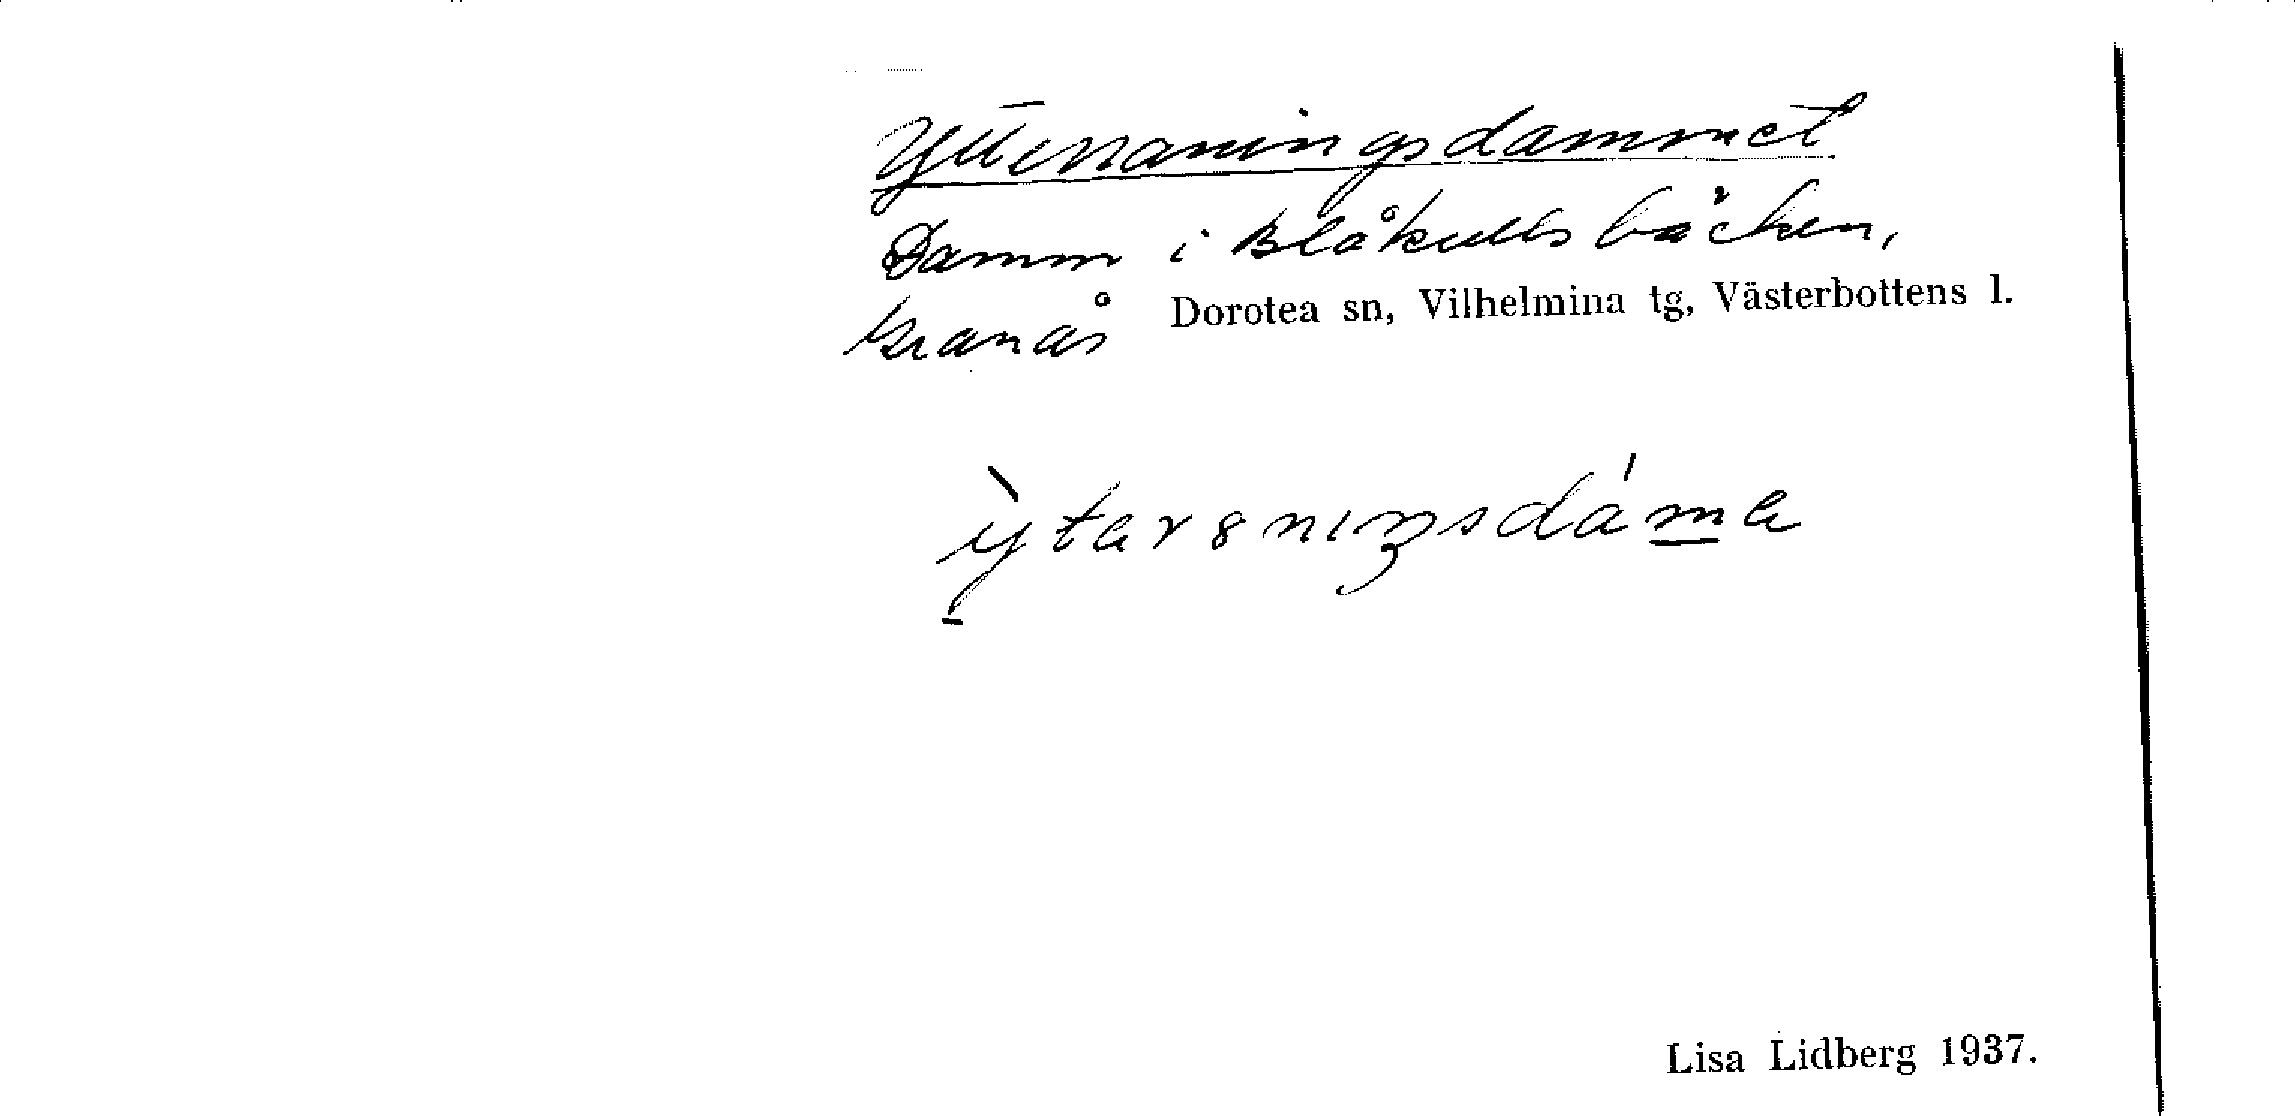 Ytterraningsdammet
Damm i Blåkullsbäcken,
Granås Dorotea sn, Vilhelmina tg, Västerbottens l.
Lisa Lidberg 1937.